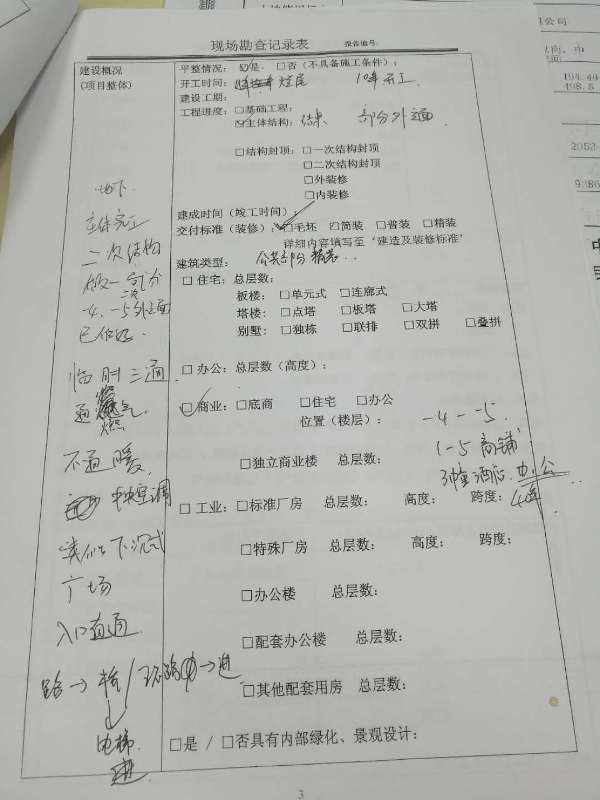 现场勘查记录表 报告编号:
建设概况
(项目整体)
平整情况: ☑是 □否(不具备施工条件);
开工时间: 年底 10年开工
建设工期:
工程进度: □基础工程;
☑主体结构: 结束 部分外立面
□结构封顶: □一次结构封顶
□二次结构封顶
□外装修
□内装修
建成时间(竣工时间):
交付标准(装修): ☑毛坯 □简装 □普装 □精装
详细内容填写至“建造及装修标准”
建筑类型: 公共部分精装..
□ 住宅: 总层数:
板楼: □单元式 □连廊式
塔楼: □点塔 □板塔 □大塔
别墅: □独栋 □联排 □双拼 □叠拼
□ 办公: 总层数(高度):
☑ 商业: □底商 □住宅 □办公
位置(楼层): -4 - -5.
1-5 商铺
□独立商业楼 总层数: 3幢 酒店. 办公
□ 工业: □标准厂房 总层数: 高度: 跨度: 4幢
□特殊厂房 总层数: 高度: 跨度:
□办公楼 总层数:
□配套办公楼 总层数:
□其他配套用房 总层数:
□是 / □否具有内部绿化、景观设计:
地下
主体完工
二次结构
-4、-5外立面
已做好.
临时三通
通燃气
燃
不通暖
中央空调
类似下沉式
广场
入口直通
路→ 桥 / 环路中→进
电梯
进
3
公司
194.40
498.5
2052
9286